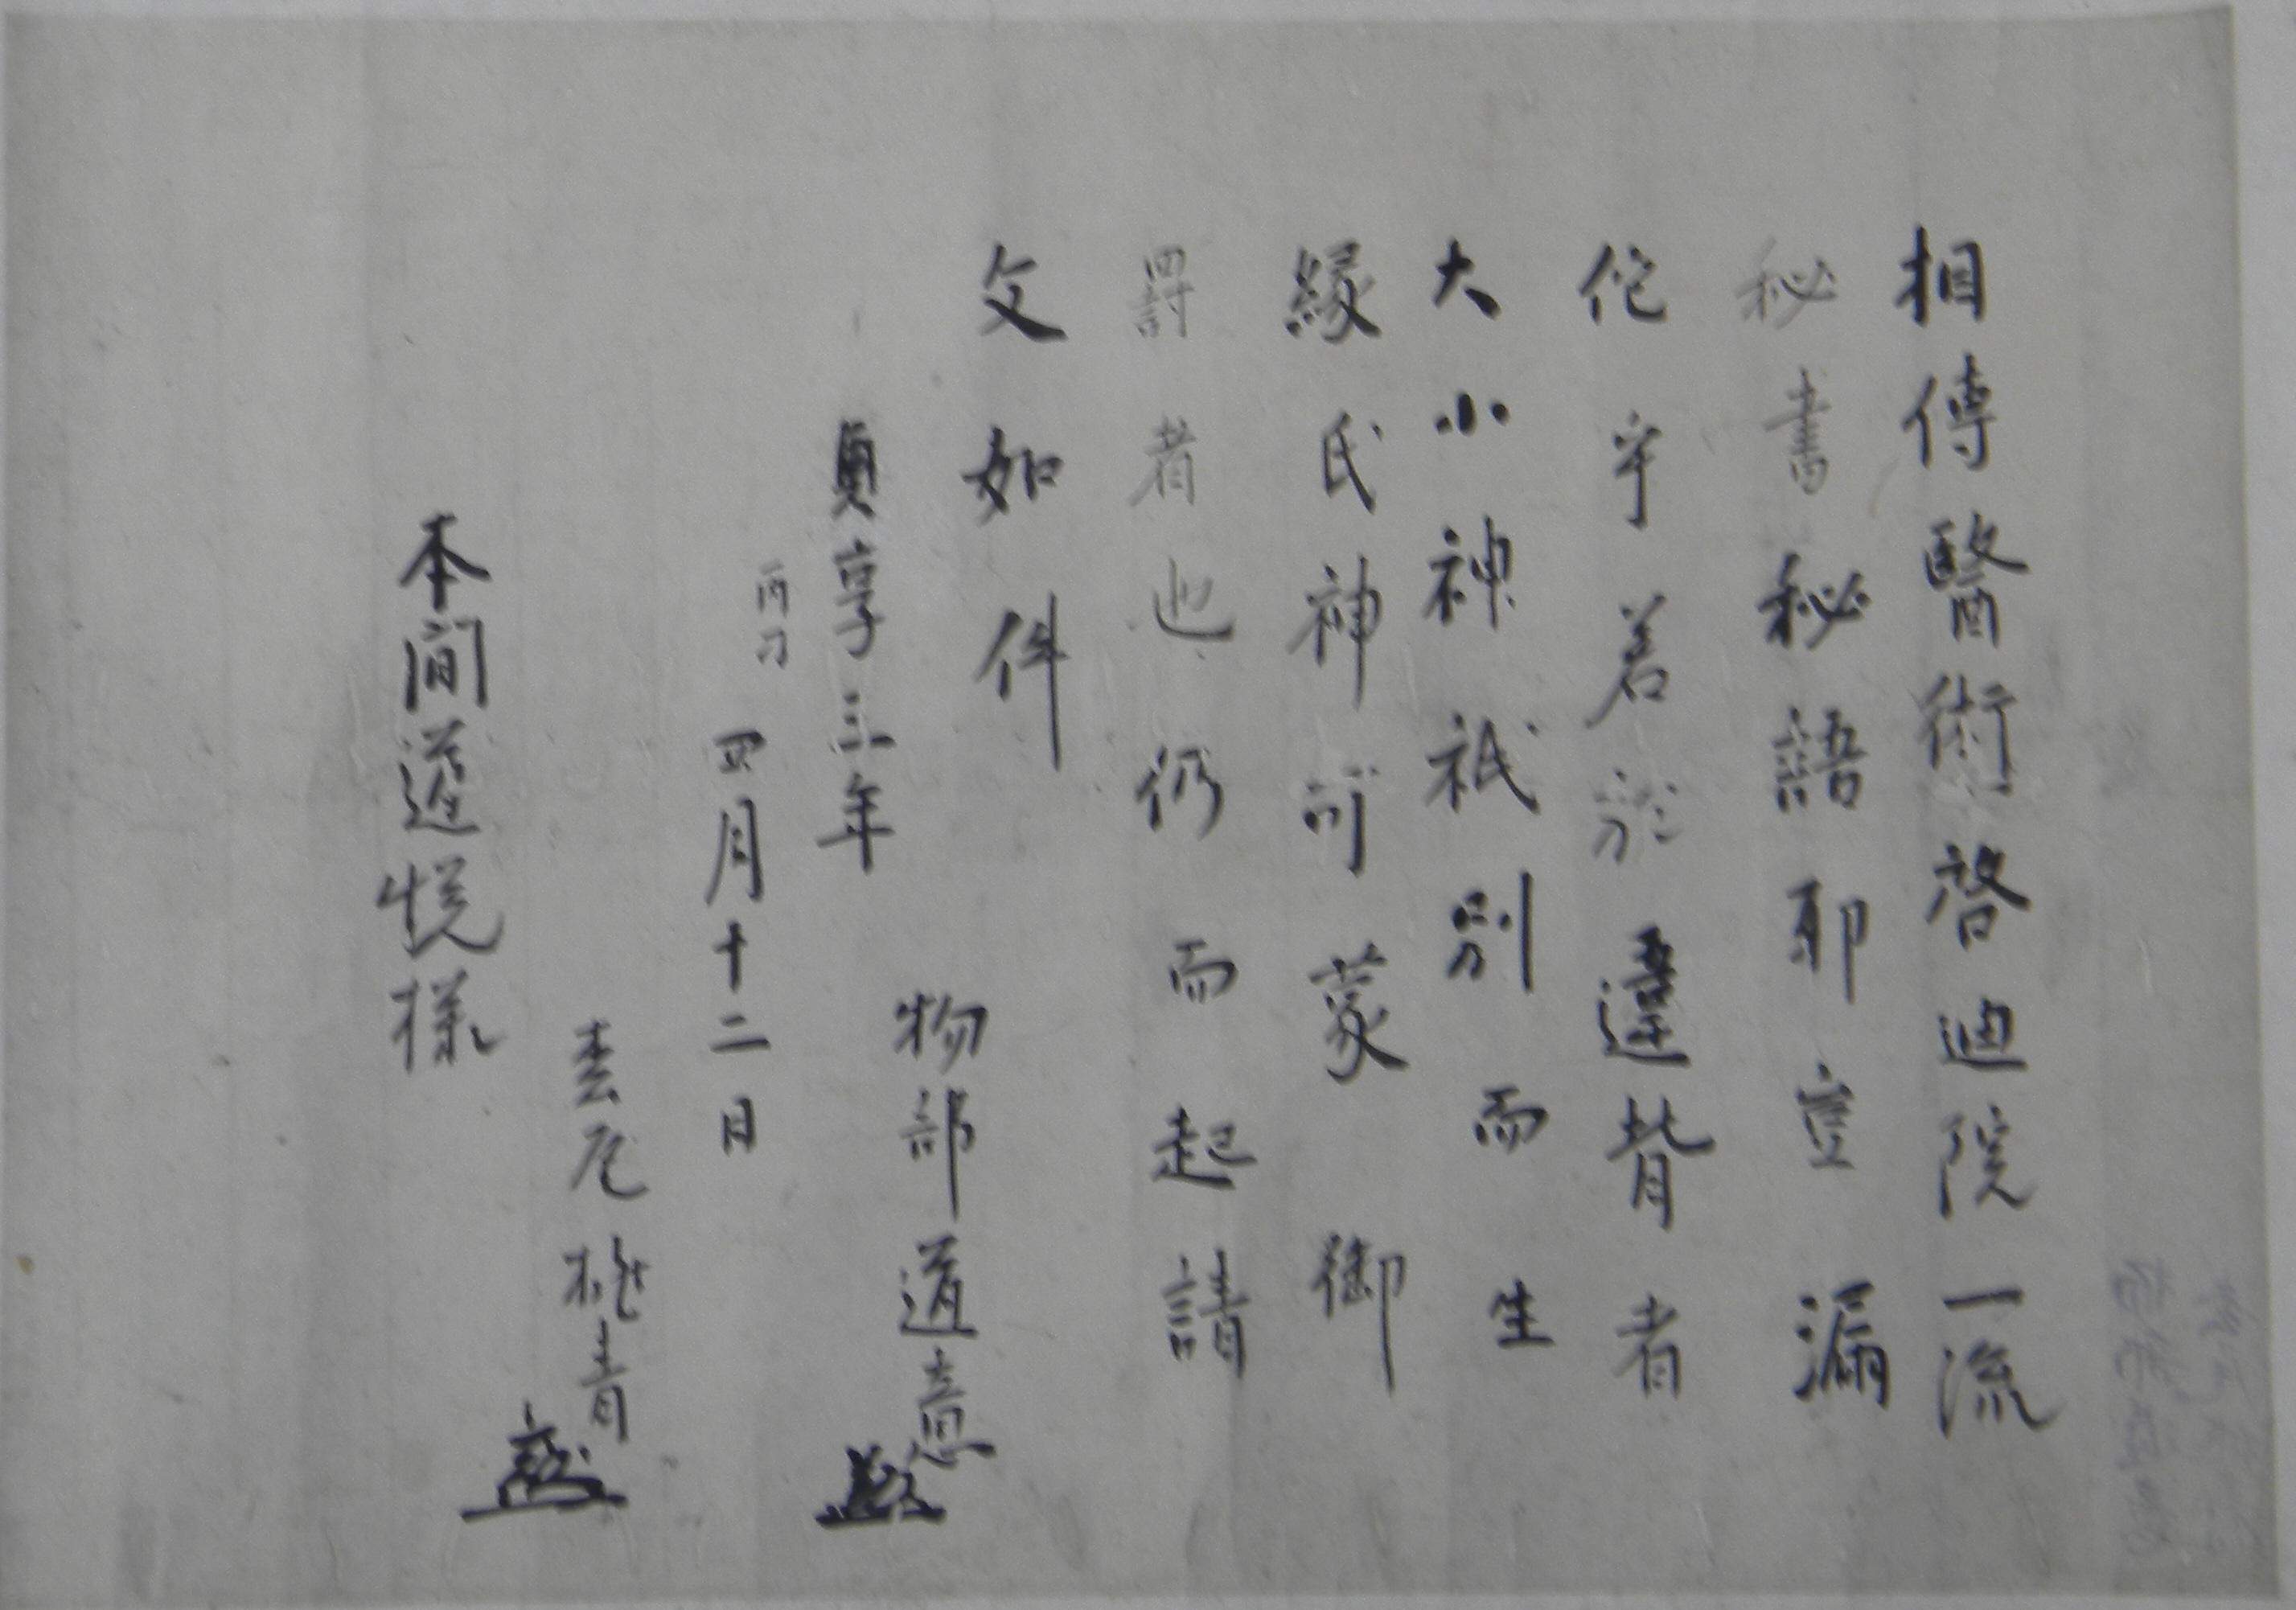 相傳醫術啓迪院一流
秘書秘語耶豈漏
佗乎若於違背者
大小神祇別而生
縁氏神可蒙御
罸者也仍而起請
文如件
貞享三年
物部道意
丙刀
四月十二日
桃青
本間道悦様